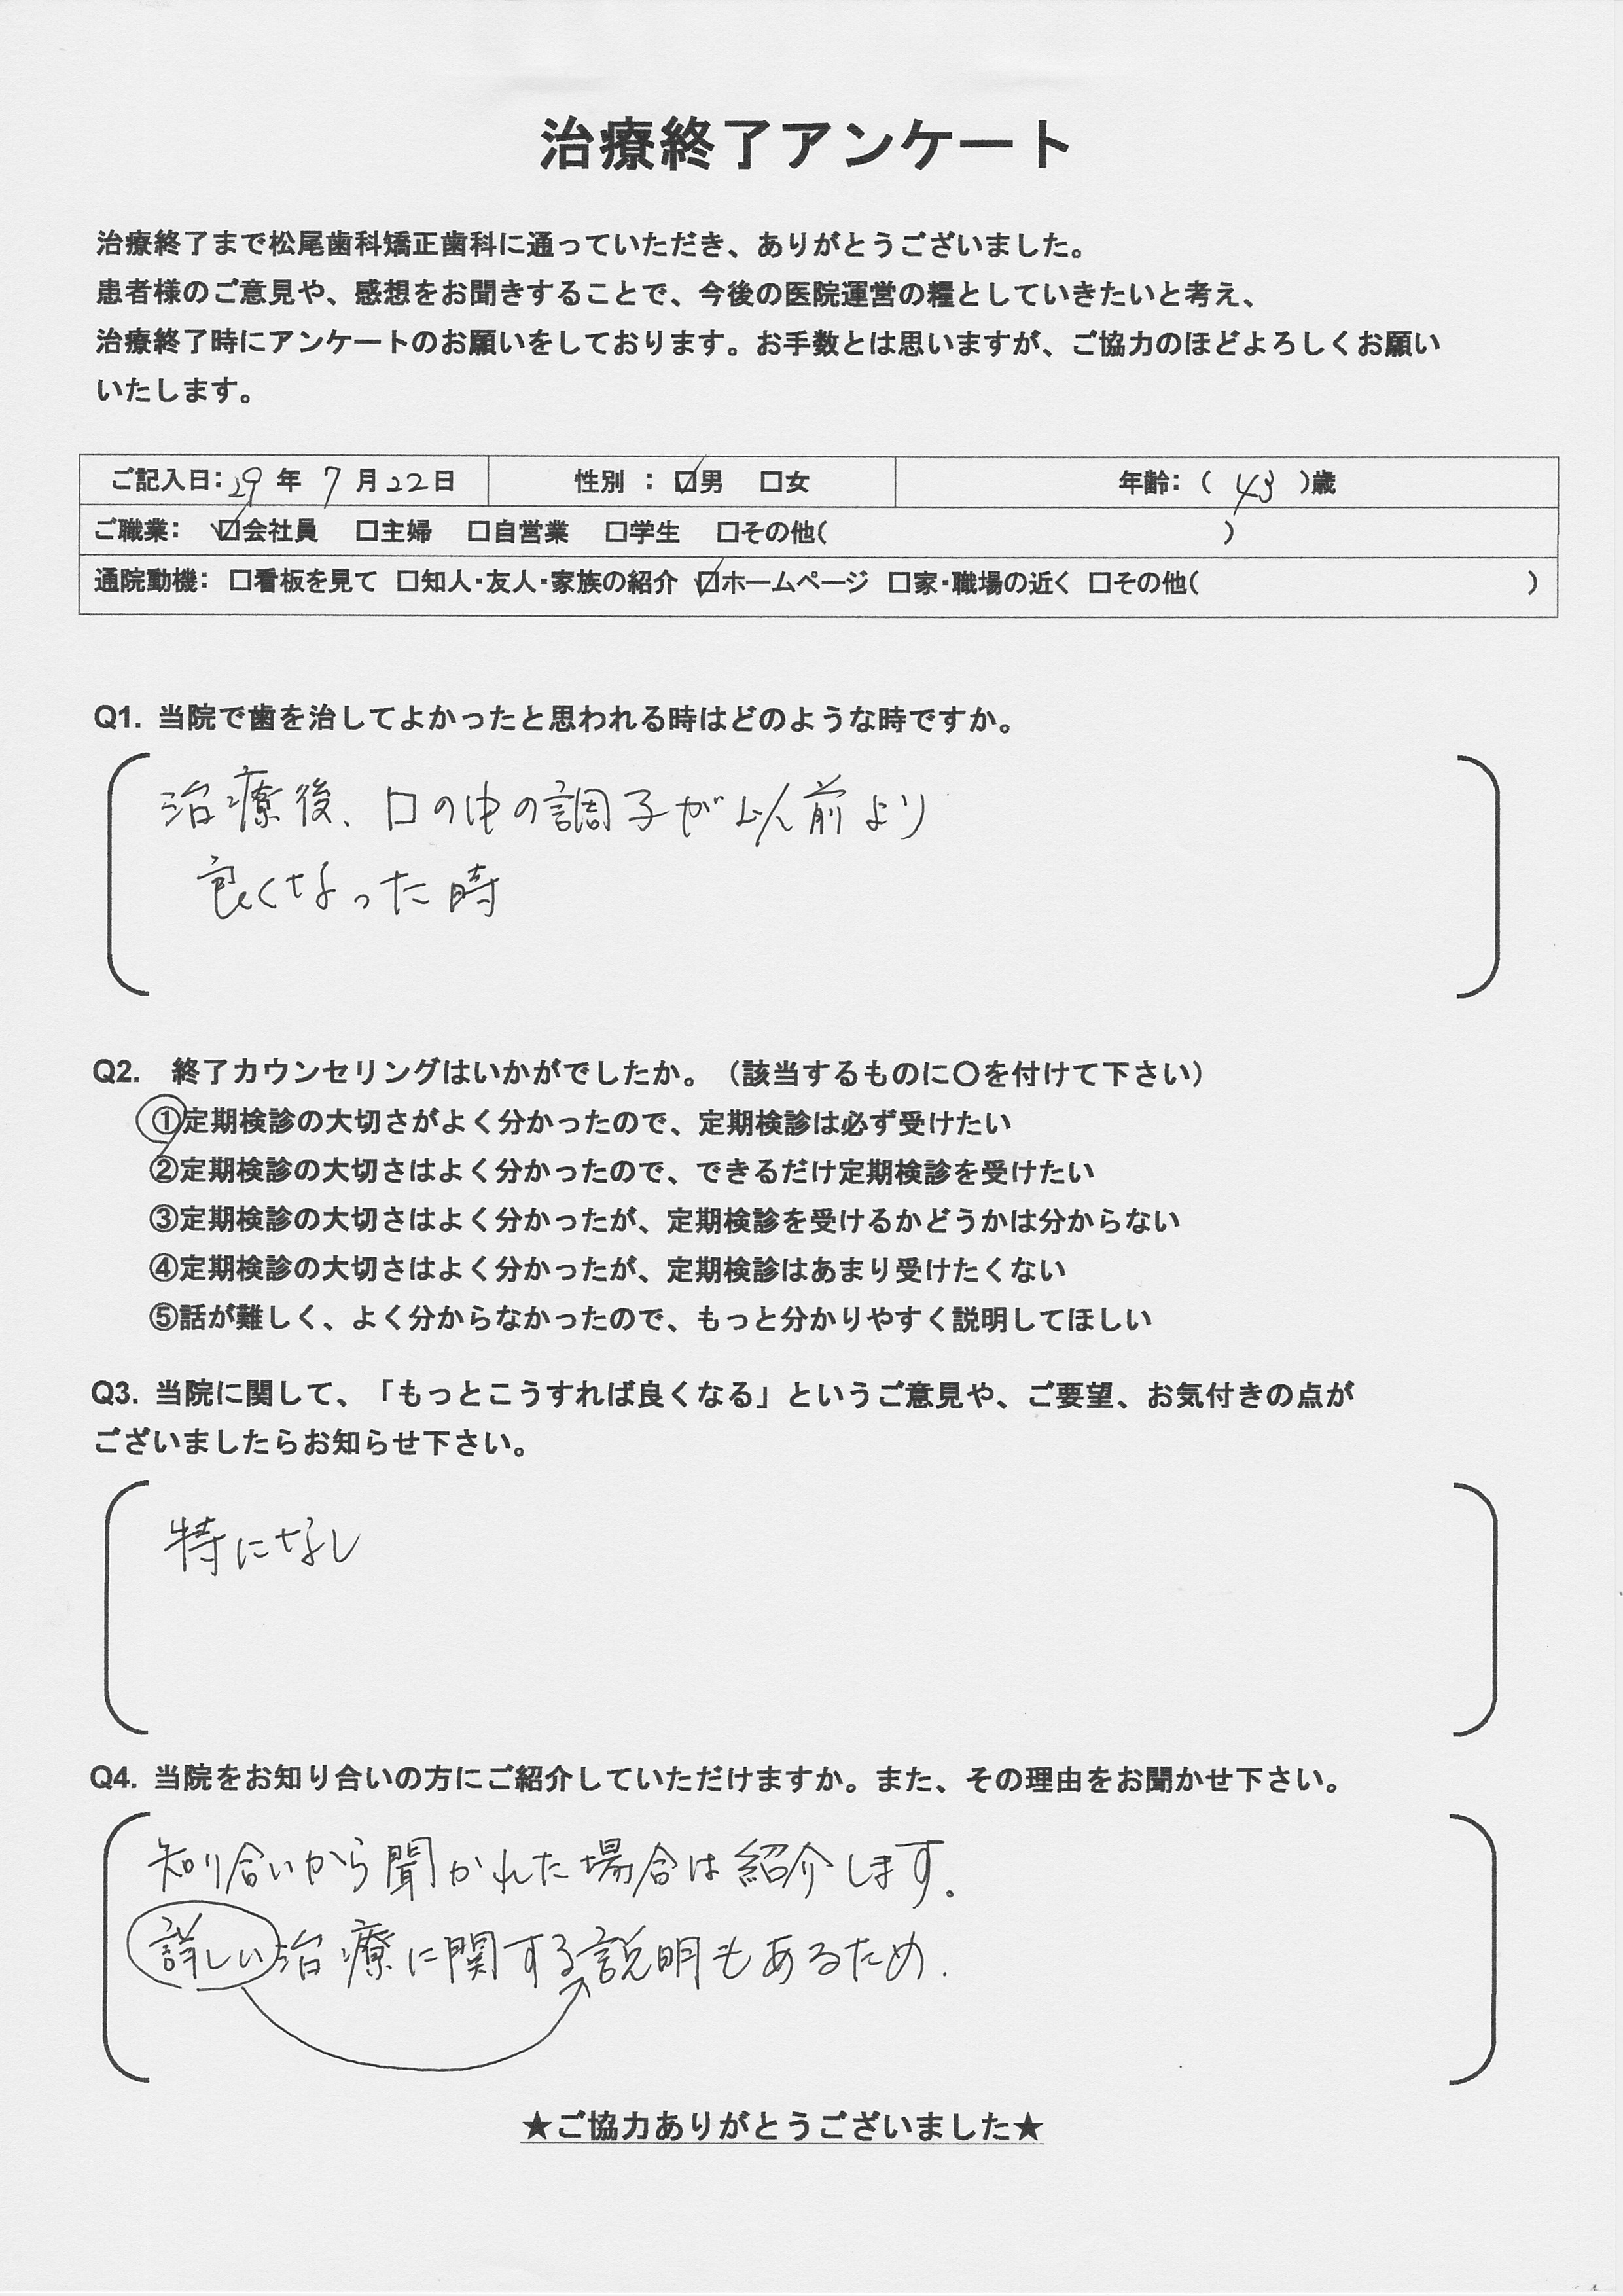 治療終了アンケート
治療終了まで松尾歯科矯正歯科に通っていただき、ありがとうございました。
患者様のご意見や、感想をお聞きすることで、今後の医院運営の糧としていきたいと考え、
治療終了時にアンケートのお願いをしております。お手数とは思いますが、ご協力のほどよろしくお願い
いたします。
ご記入日：29年 7月22日 性別 ： ☑男 □女 年齢：（ 43 ）歳
ご職業： ☑会社員 □主婦 □自営業 □学生 □その他（ ）
通院動機： □看板を見て □知人・友人・家族の紹介 ☑ホームページ □家・職場の近く □その他（ ）
Q1. 当院で歯を治してよかったと思われる時はどのような時ですか。
治療後、口の中の調子が以前より
良くなった時
Q2. 終了カウンセリングはいかがでしたか。（該当するものに〇を付けて下さい）
①定期検診の大切さがよく分かったので、定期検診は必ず受けたい
②定期検診の大切さはよく分かったので、できるだけ定期検診を受けたい
③定期検診の大切さはよく分かったが、定期検診を受けるかどうかは分からない
④定期検診の大切さはよく分かったが、定期検診はあまり受けたくない
⑤話が難しく、よく分からなかったので、もっと分かりやすく説明してほしい
Q3. 当院に関して、「もっとこうすれば良くなる」というご意見や、ご要望、お気付きの点が
ございましたらお知らせ下さい。
特になし
Q4. 当院をお知り合いの方にご紹介していただけますか。また、その理由をお聞かせ下さい。
知り合いから聞かれた場合は紹介します。
詳しい治療に関する説明もあるため.
★ご協力ありがとうございました★